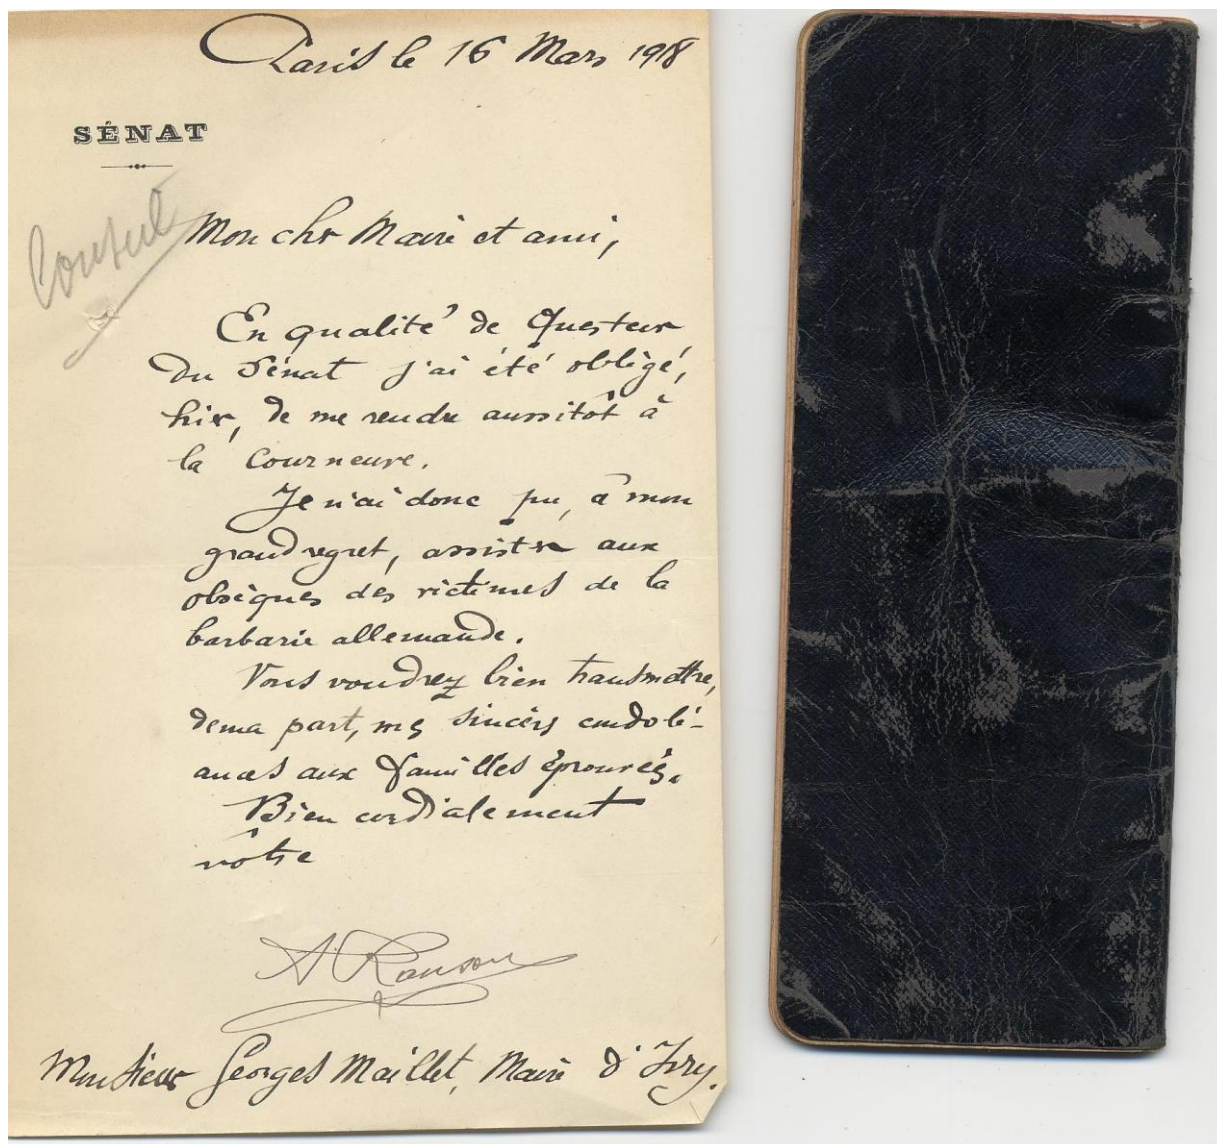 Paris le 16 Mars 1918
SÉNAT
Mon cher Maire et ami,
En qualité de Questeur
du Sénat j'ai été obligé,
hier, de me rendre aussitôt à
la Courneuve.
Je n'ai donc pu, à mon
grand regret, assister aux
obsèques des victimes de la
barbarie allemande.
Vous voudrez bien transmettre,
de ma part, mes sincères condolé-
ances aux familles éprouvées.
Bien cordialement
vôtre
A. Ranson
Monsieur Georges Maillet, Maire d'Ivry.